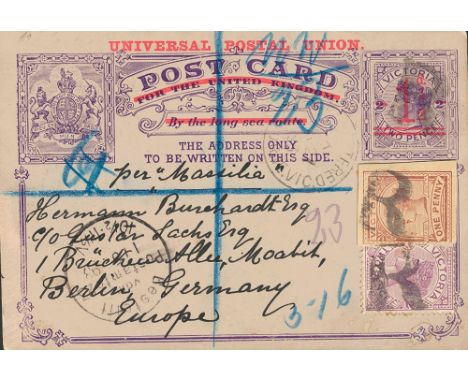 UNIVERSAL POSTAL UNION.
POST CARD
FOR THE UNITED KINGDOM.
By the long sea route.
THE ADDRESS ONLY
TO BE WRITTEN ON THIS SIDE.
VICTORIA
2 2
TWO PENCE
per "Massilia"
Hermann Burchardt Esq
c/o Gustav Sachs Esq
1 Brücken Allee, Moabit,
Berlin, Germany
Europe
93
3-16
ONE PENNY
VICTORIA